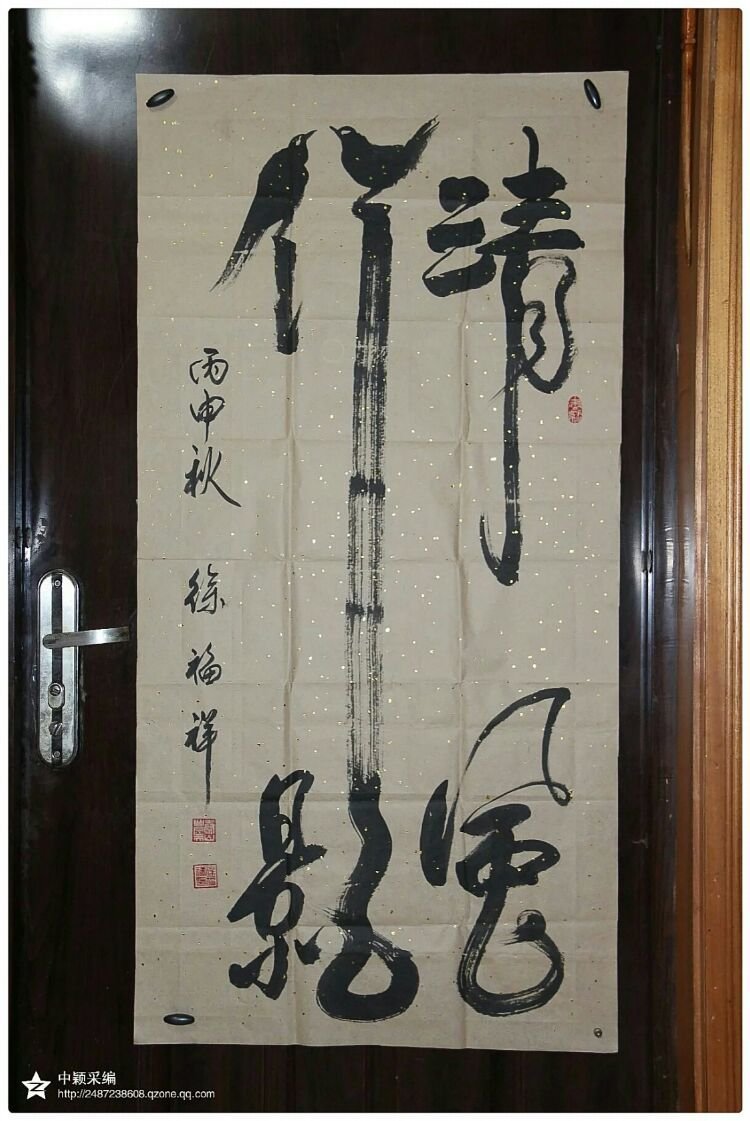 清风
竹影
丙申秋
徐福祥
中颖采编
http://2487238608.qzone.qq.com